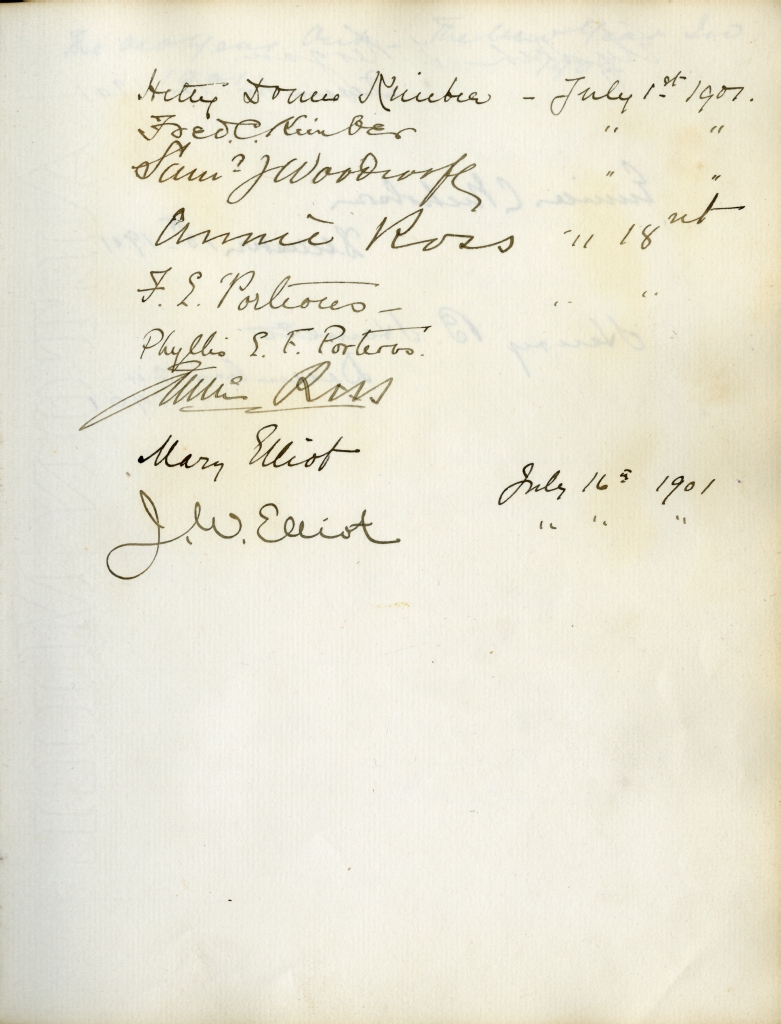 Hetty Kimber - July 1st 1901.
Fred. C. Kimber " "
Saml J Woodroofe " "
Annie Ross " 18
F. E. Porteous - " "
Phyllis E. F. Porteous.
Ross
Mary Elliot
July 16th 1901
J. W. Elliot " " "